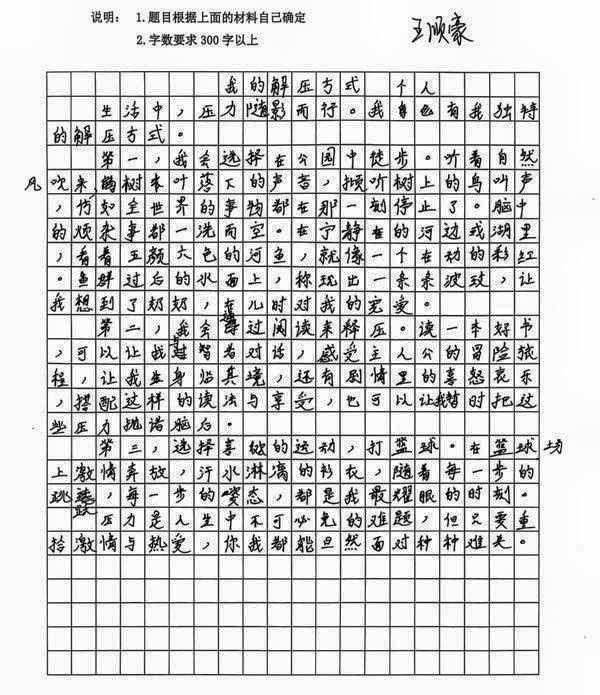 说明： 1.题目根据上面的材料自己确定
2.字数要求 300 字以上
王顺豪
我的解压方式 个人
生活中，压力随影而行。我自己有我独特
的解压方式。
第一，我会选择在公园中徒步。听着自然
风吹来，树木叶落下的声音，倾听树上的鸟叫声
，仿如全世界的事物都在那一刻停止了。脑中
的烦杂事都一洗而空。在宁静在的河边或湖里
，看着五颜六色的河鱼，就像一个在动的彩虹
。鱼群过后的水面上，称现出一条条波纹，让
我想到了奶奶，在儿时对我的宠爱。
第二，我会通过阅读来释压。读一本好书
，可以让我与智者对话，感受主人公的冒险旅
程，让我坐身临其境，还有剧情里的喜怒哀乐
，搭配这样的读法与享受，也可以让我暂时把这
些压力抛诸脑后。
第三，选择喜欢的运动，打篮球。在篮球场
上激情奔放，汗水淋漓的衫衣，随着每一步的
跳跃，每一步的姿态，都是我最耀眼的时刻。
压力是人生中不可必免的难题，但只要重
拾激情与热爱，你我都能旦然面对种种难关。